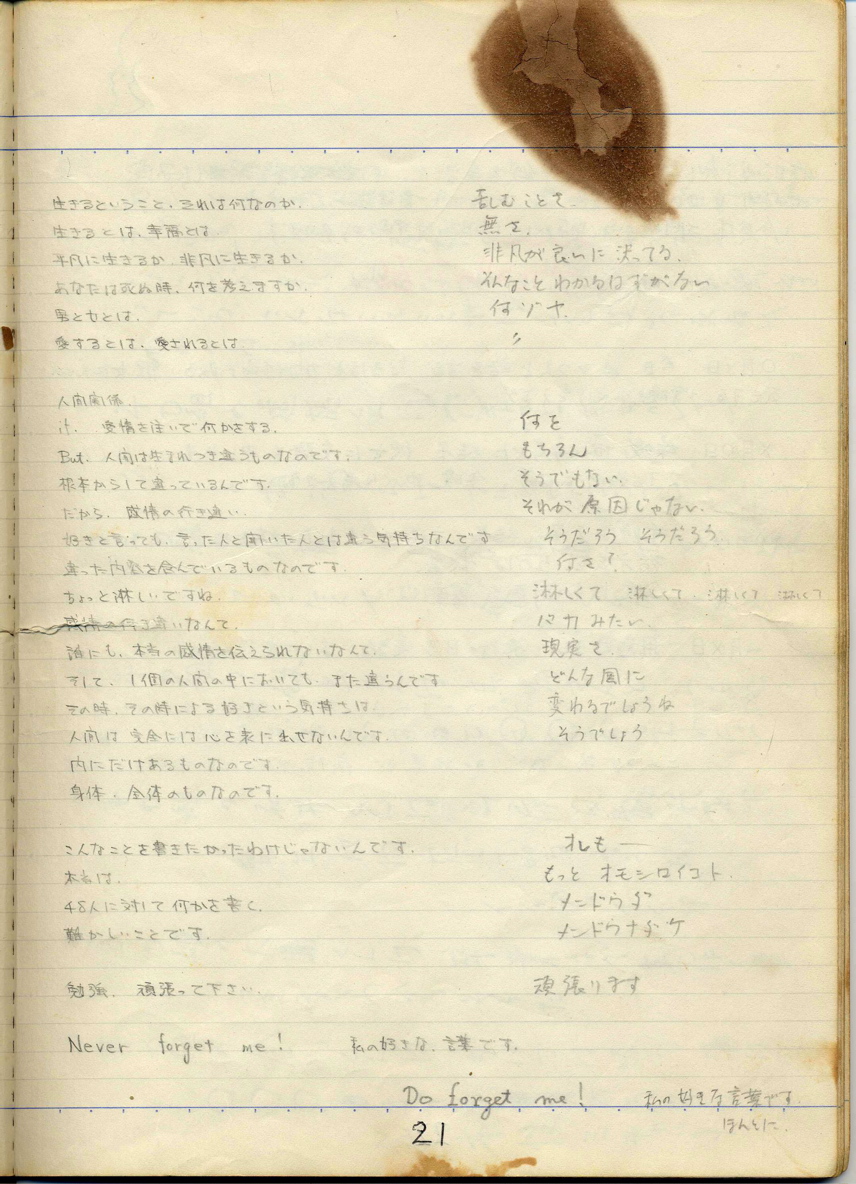 生きるということ、それは何なのか。 乱むことさ
生きるとは、幸福とは 無さ。
平凡に生きるか、非凡に生きるか。 非凡が良いに決ってる。
あなたは死ぬ時、何を考えますか。 そんなことわかるはずがない
男と女とは。 何ゾヤ.
愛するとは、愛されるとは 〃
人間関係.
if. 愛情を注いで何かをする. 何を
But. 人間は生まれつき違うものなのです. もちろん
根本からして違っているんです. そうでもない.
だから、感情の行き違い. それが原因じゃない.
好きと言っても、言った人と聞いた人とは違う気持ちなんです そうだろう そうだろう.
違った内勢を含んでいるものなのです. 何さ?
ちょっと淋しいですね. 淋しくて 淋しくて. 淋しくて 淋しくて
感情の行き違いなんて. バカみたい.
誰にも、本当の感情を伝えられないなんて. 現実さ.
そして、1個の人間の中においても、また違うんです どんな風に
その時、その時による好きという気持ちは. 変わるでしょうね
人間は完全には心を表に出せないんです. そうでしょう
内にだけあるものなのです.
身体・全体のものなのです.
こんなことを書きたかったわけじゃないんです. オレも―
本当は. もっとオモシロイコト.
48人に対して何かを書く. メンドウダ
難かしいことです. メンドウナダケ
勉強、頑張って下さい. 頑張ります
Never forget me! 私の好きな、言葉です.
Do forget me! 私の好きな言葉です.
ほんとに.
21